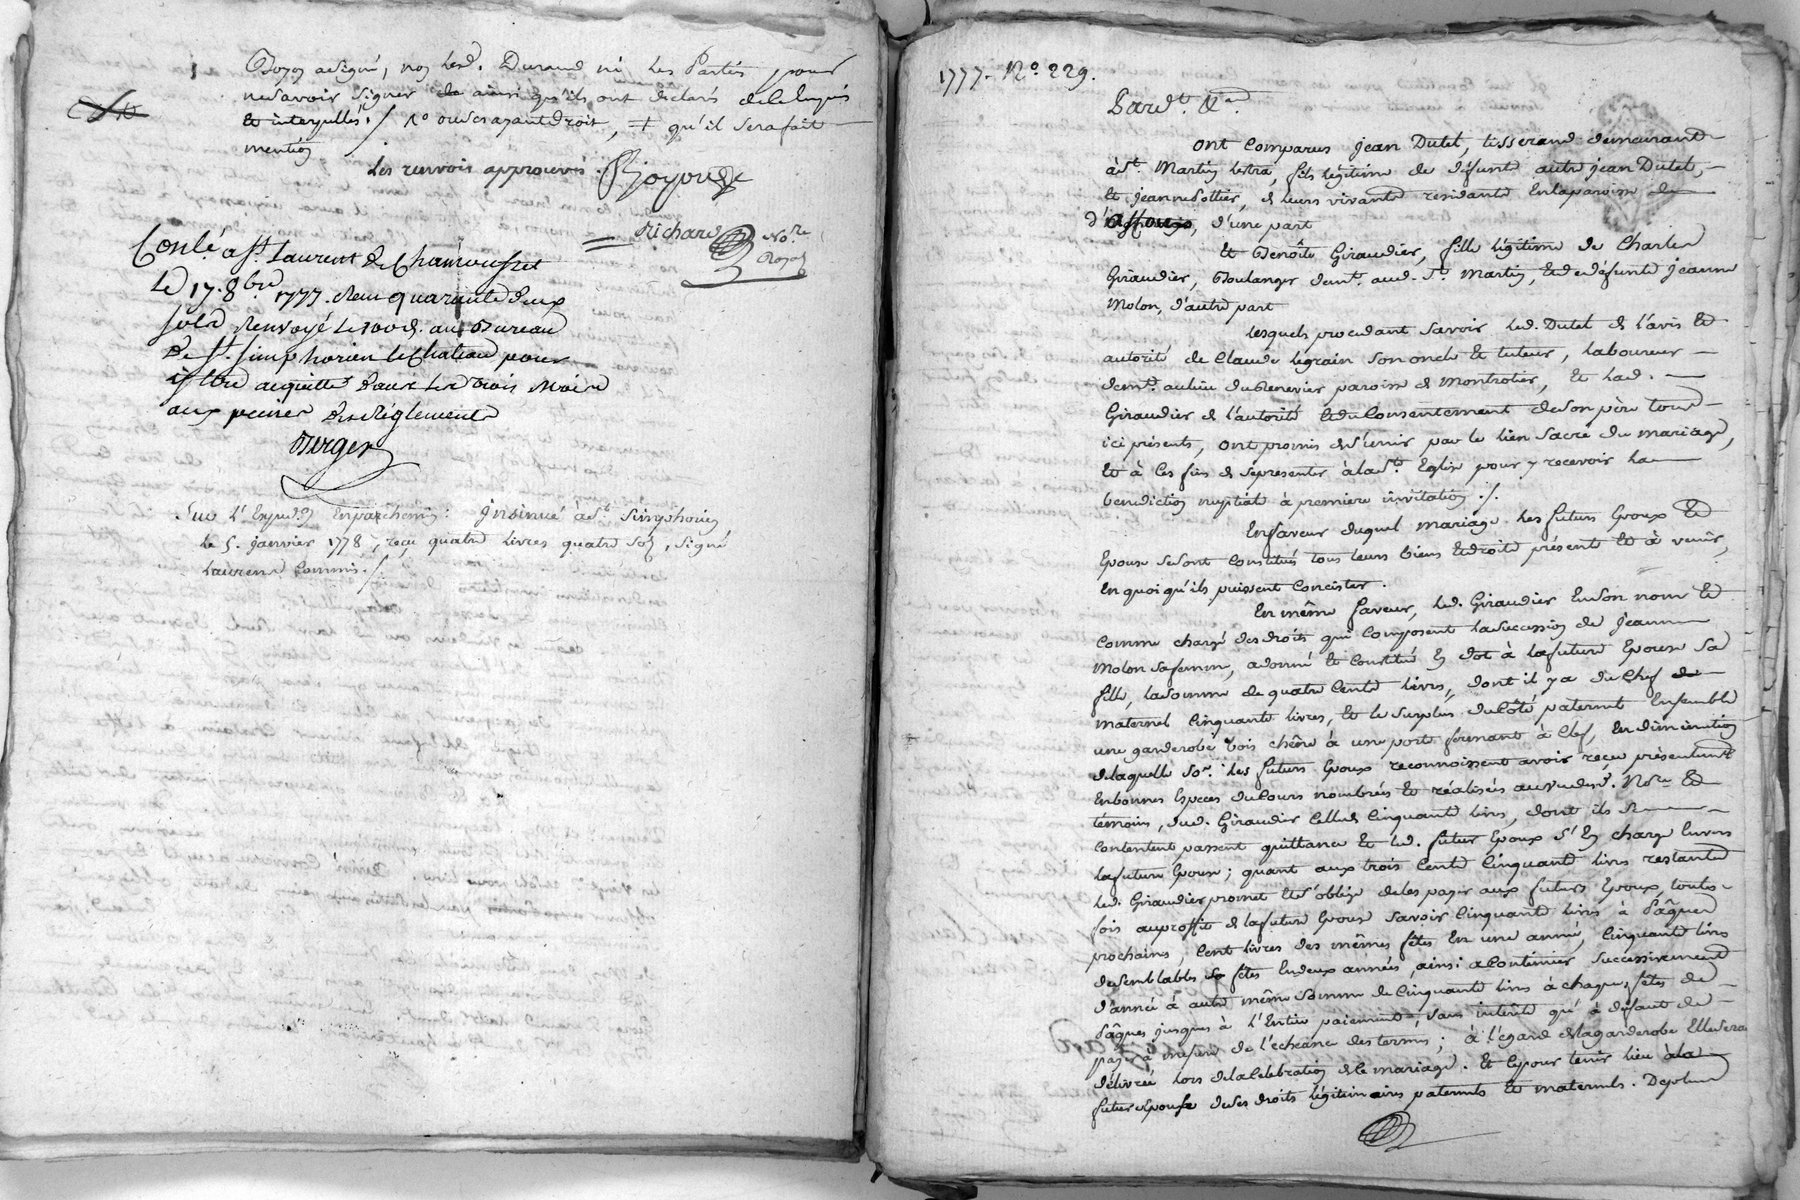 Boyer a signé, non led. Durand ni les Parties pour
ne savoir signer ainsi qu'ils ont declaré de ce enquis
et interpellés ./. ou ses ayant droit, ≠ qu'il sera fait
mention
Les renvois approuvés.
Richard No.re
Royal
Conlé. a St. Laurent de Chamousset
Le 17. 8bre 1777. Reçu quarante deux
sols Renvoyé le 100e d. au Bureau
de St. Simphorien le Chateau pour
y être acquitté dans les trois mois
aux peines des Réglements
Berger
Sur l'Expedon. en parchemin : Insinué à St. Simphorien
le 5. janvier 1778, reçu quatre livres quatre sols, signé
Laurend Commis ./.
1777. No. 229.
Pardt. &a.
Ont comparus jean Dutel, tisserand demeurant
à St. Martin Lestra, fils légitime de défunts autre jean Dutel,
et jeanne Pottier, de leurs vivants residants en la paroisse
d'Affoux, d'une part
Et Benoîte Giraudier, fille légitime de Charles
Giraudier, Boulanger demt. aud. St. Martin, et de défunte Jeanne
Molon, d'autre part
Lesquels procedant savoir led. Dutel de l'avis et
autorité de Claude Legrain son oncle et tuteur, laboureur
demt. au lieu du Benevier paroisse de Montrotier, et lad.
Giraudier de l'autorité et du consentement de son père tous
ici présents, ont promis de s'unir par le lien sacré du mariage,
et à ces fins de se presenter à la Ste. Eglise pour y recevoir la
benediction nuptial à premiere invitation ./.
En faveur duquel mariage les futurs Epoux et
Epouse se sont constitués tous leurs biens et droits présents et à venir,
en quoi qu'ils puissent concister.
En même faveur, led. Giraudier en son nom et
comme chargé des droits qui composent la succession de Jeanne
Molon sa femme, a donné et constitué en dot à la future Epouse sa
fille, la somme de quatre cents livres, dont il y a du chef
maternel cinquante livres, et le surplus du côté paternel Ensemble
une garderobe bois chêne à une porte fermant à clef, en diminution
de laquelle so.e les futurs Epoux reconnoissent avoir reçu présentement
en bonnes especes du cours nombrées et réalisées au vu desd. No.re et
témoins, dud. Giraudier celle de cinquante livres, dont ils se
contentent passent quittance et led. futur Epoux s'en charge envers
la future Epouse ; quant aux trois cents cinquante livres restantes
led. Giraudier promet et s'oblige de les payer aux futurs Epoux, toutes-
fois au proffit de la future Epouse savoir cinquante livres à Pâques
prochaines, cent livres des mêmes fêtes en une année, cinquante livres
de semblables fêtes en deux années, ainsi a continuer successivement
d'année à autre même somme de cinquante livres à chaques fêtes de
Pâques jusques à l'entier paiement, sans intérêts qu'à défaut de
paye à mesure de l'echeance des termes ; à l'égard de la garderobe Elle sera
délivrée lors de la celebration de ce mariage. Et ce pour tenir lieu à la
future Epouse de ses droits légitimaires paternels et maternels.